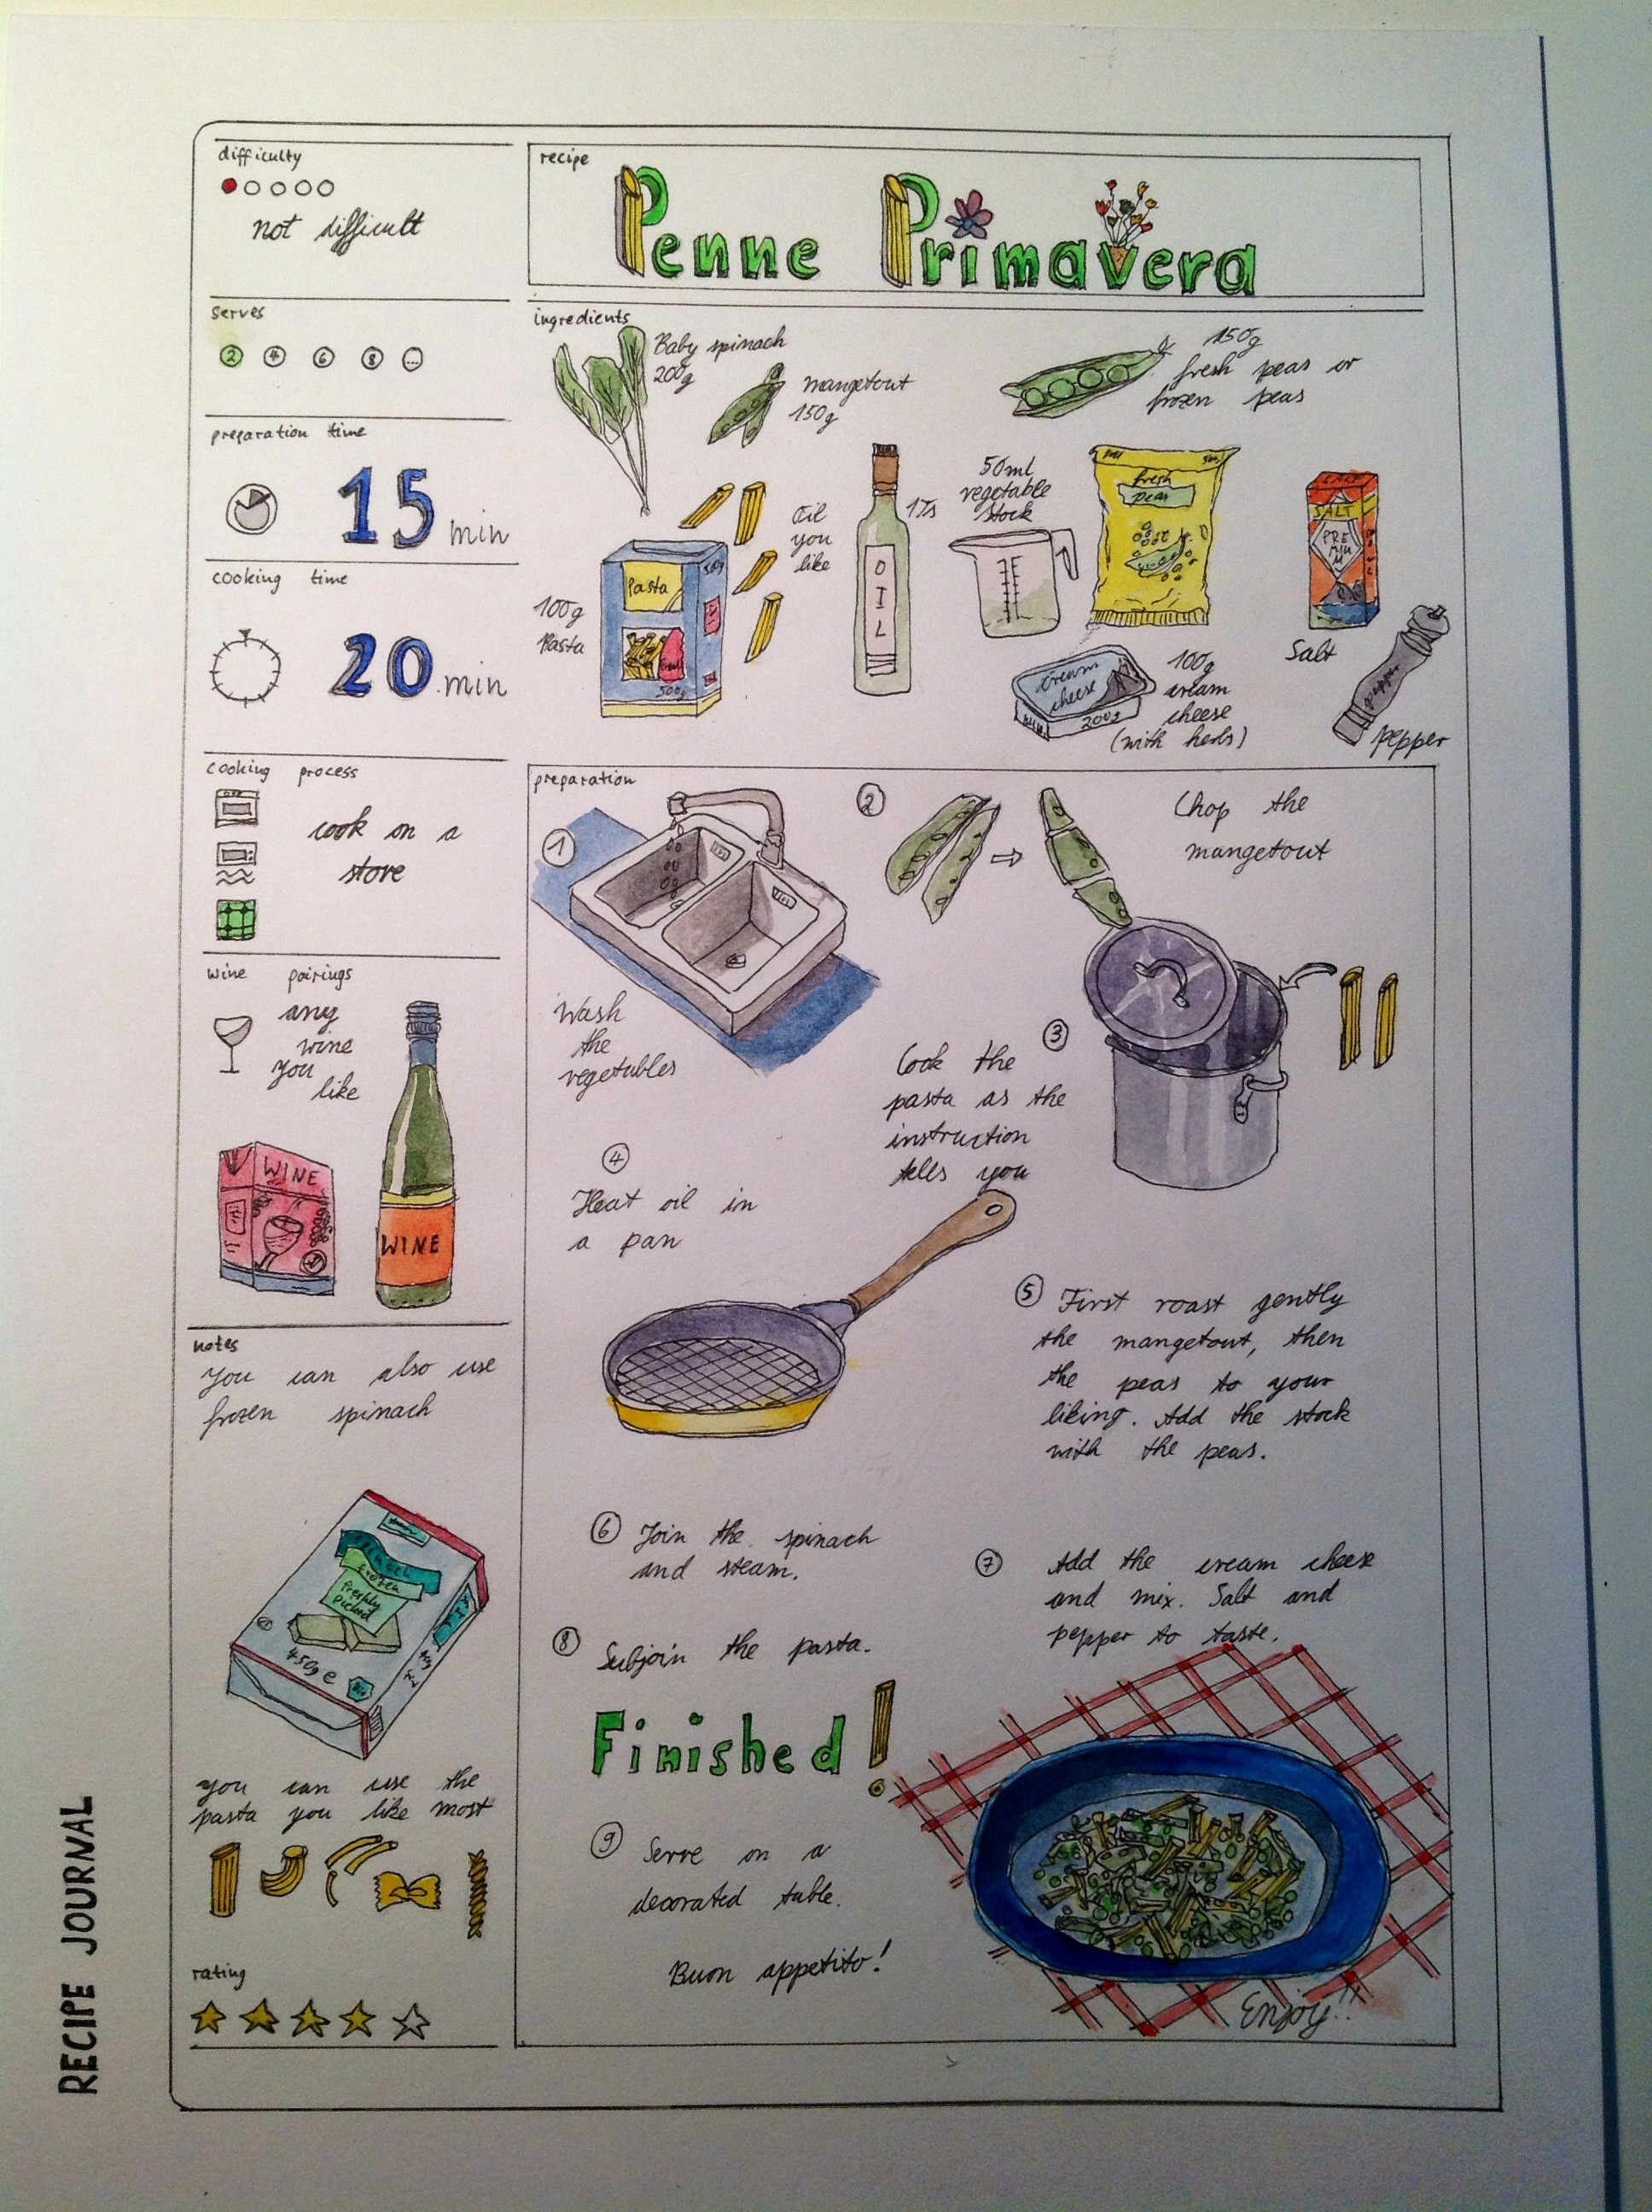 difficulty
not difficult
serves
2 4 6 8 ...
preparation time
15 min
cooking time
20 min
cooking process
cook on a
stove
wine pairings
any
wine
you
like
WINE
WINE
notes
you can also use
frozen spinach
frozen
freshly
picked
450g e
Bio
you can use the
pasta you like most
rating
RECIPE JOURNAL
recipe
Penne Primavera
ingredients
Baby spinach
200g
mangetout
150g
150g
fresh peas or
frozen peas
100g
Pasta
Pasta
500g
500g
Oil
you
like
OIL
1Ts
50ml
vegetable
stock
fresh
peas
SALT
SALT
PRE
MIU
M
Salt
cream
cheese
200g
100g
cream
cheese
(with herbs)
pepper
pepper
preparation
1
Wash
the
vegetables
2
Chop the
mangetout
3
Cook the
pasta as the
instruction
tells you
4
Heat oil in
a pan
5 First roast gently
the mangetout, then
the peas to your
liking. Add the stock
with the peas.
6 Join the spinach
and steam.
7 Add the cream cheese
and mix. Salt and
pepper to taste.
8 Subjoin the pasta.
Finished!
9 Serve on a
decorated table.
Buon appetito!
Enjoy!!